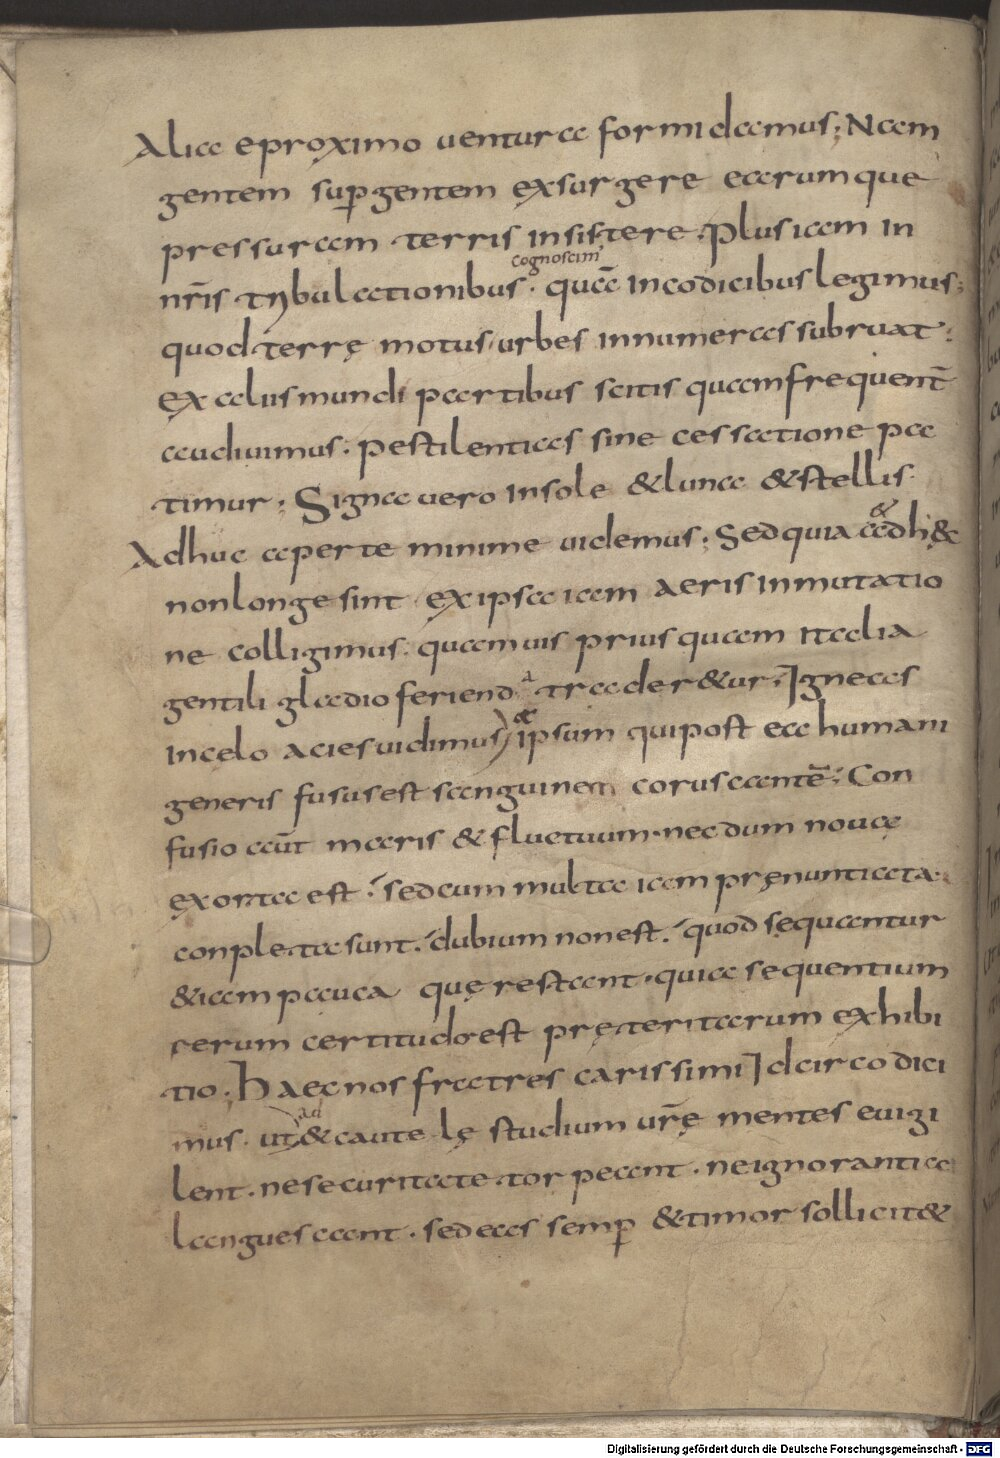 Alia e proximo ventura formidamus; Nam
gentem sup̱ gentem exsurgere earumque
pressuram terris insistere. Plus iam in
cognoscim̄
nr̄is tybulationibus. quā in codicibus legimus;
quod terrę motus urbes innumeras subruat;
Ex alus mundi partibus scitis quam frequent̄
audiuimus. pestilentias sine cessatione pa
timur. Signa uero in sole & luna & stellis.
Adhuc aperte minime uidemus; Sed quia adh&
non longe sint ex ipsa iam aeris inmutatio
ne colligimus. quamuis prius quam italia
gentili gladio feriend a trader&ur; Igneas
in celo acies uidimus ipsum qui post ea humani
generis fusus est sanguinem coruscantē; Con
fusio aūt maris & fluctuum. necdum noua
exorta est; sed cum multa iam pręnuntiata.
conpleta sunt; dubium non est; quod sequantur
& iam pauca quę restant. quia sequentium
rerum certitudo est pręteritarum exhibi
tio. Haec nos fratres carissimi Idcirco dici
ad
mus. ut & caute lę studium ur̄ę mentes euigi
lent. ne securitate torpeant. ne ignorantia
langues cant. sed eas semp̱ & timor sollicit&
Digitalisierung gefördert durch die Deutsche Forschungsgemeinschaft - DFG